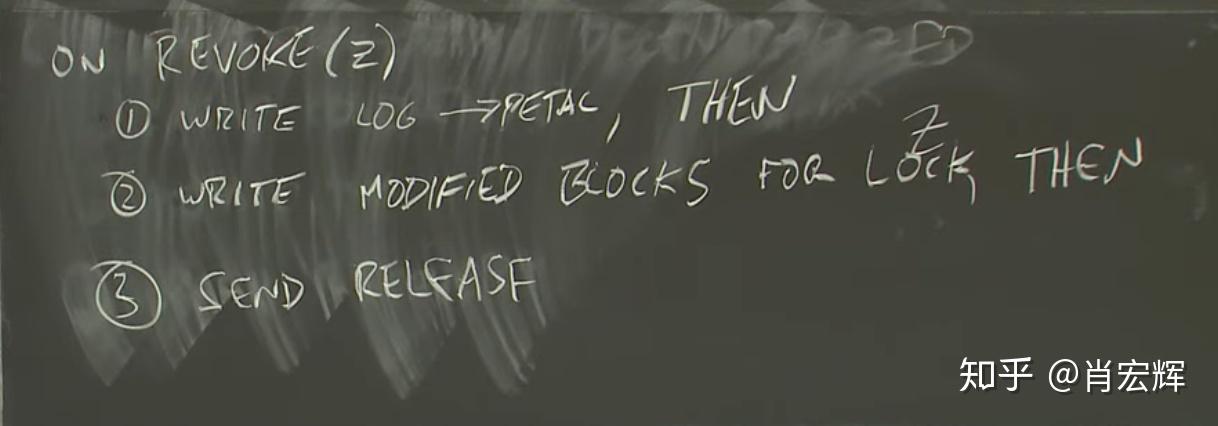 ON REVOKE(Z)
① WRITE LOG → PETAL, THEN
② WRITE MODIFIED BLOCKS FOR LOCK Z, THEN
③ SEND RELEASE
知乎 @肖宏辉